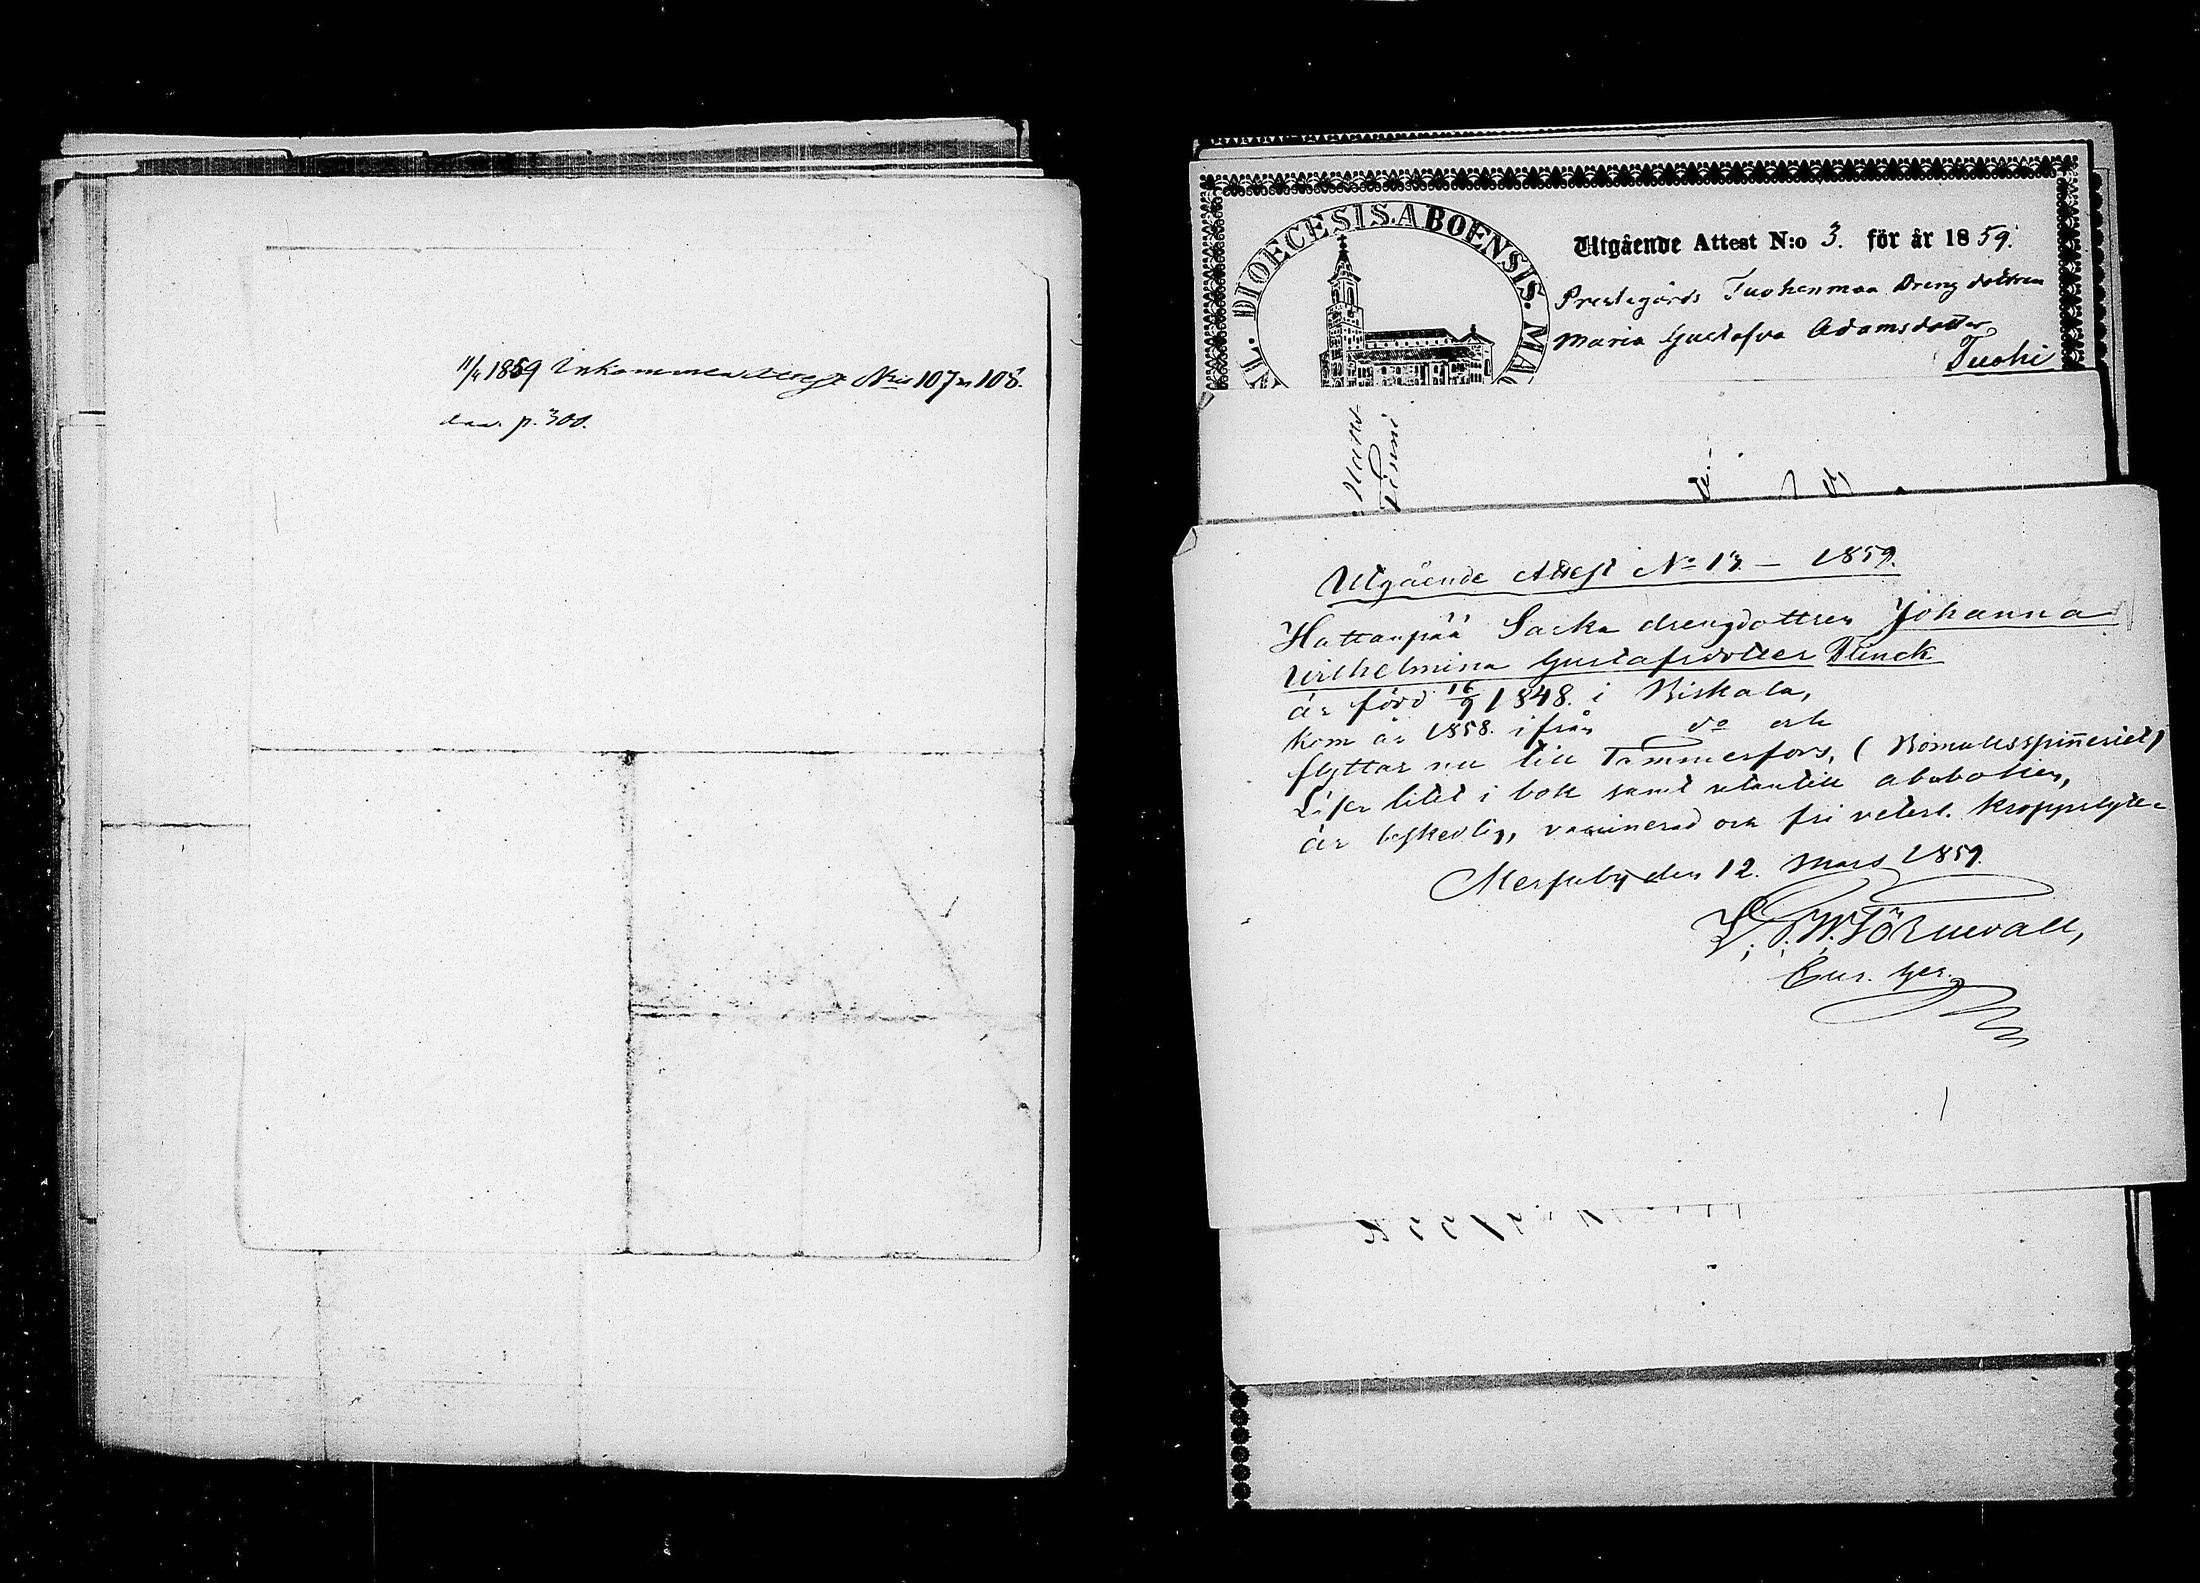 11/4 1859 Inkommen Attest N:ris 107 & 108.
p. 300.
DIOECESIS. ABOENSIS. MAG
Utgående Attest N:o 3. för år 1859.
Prestegårds Tuohenmaa Drengdottren
Maria Gustafva Adamsdotter
Tuohi
Utgående Attest No 13 – 1859.
Hattanpää Sacka drengdottren Johanna
Wilhelmina Gustafsdotter Flinck
är född 16/9 1848. i Birkala,
kom år 1858. ifrån do och
flyttar nu till Tammerfors, (Bomullsspinneriet)
Läser litet i bok samt utantill abcboken,
är beskedlig, vaccinerad och fri veterl. kroppslyte
Messuby den 12. Mars 1859.
W. Törnewall,